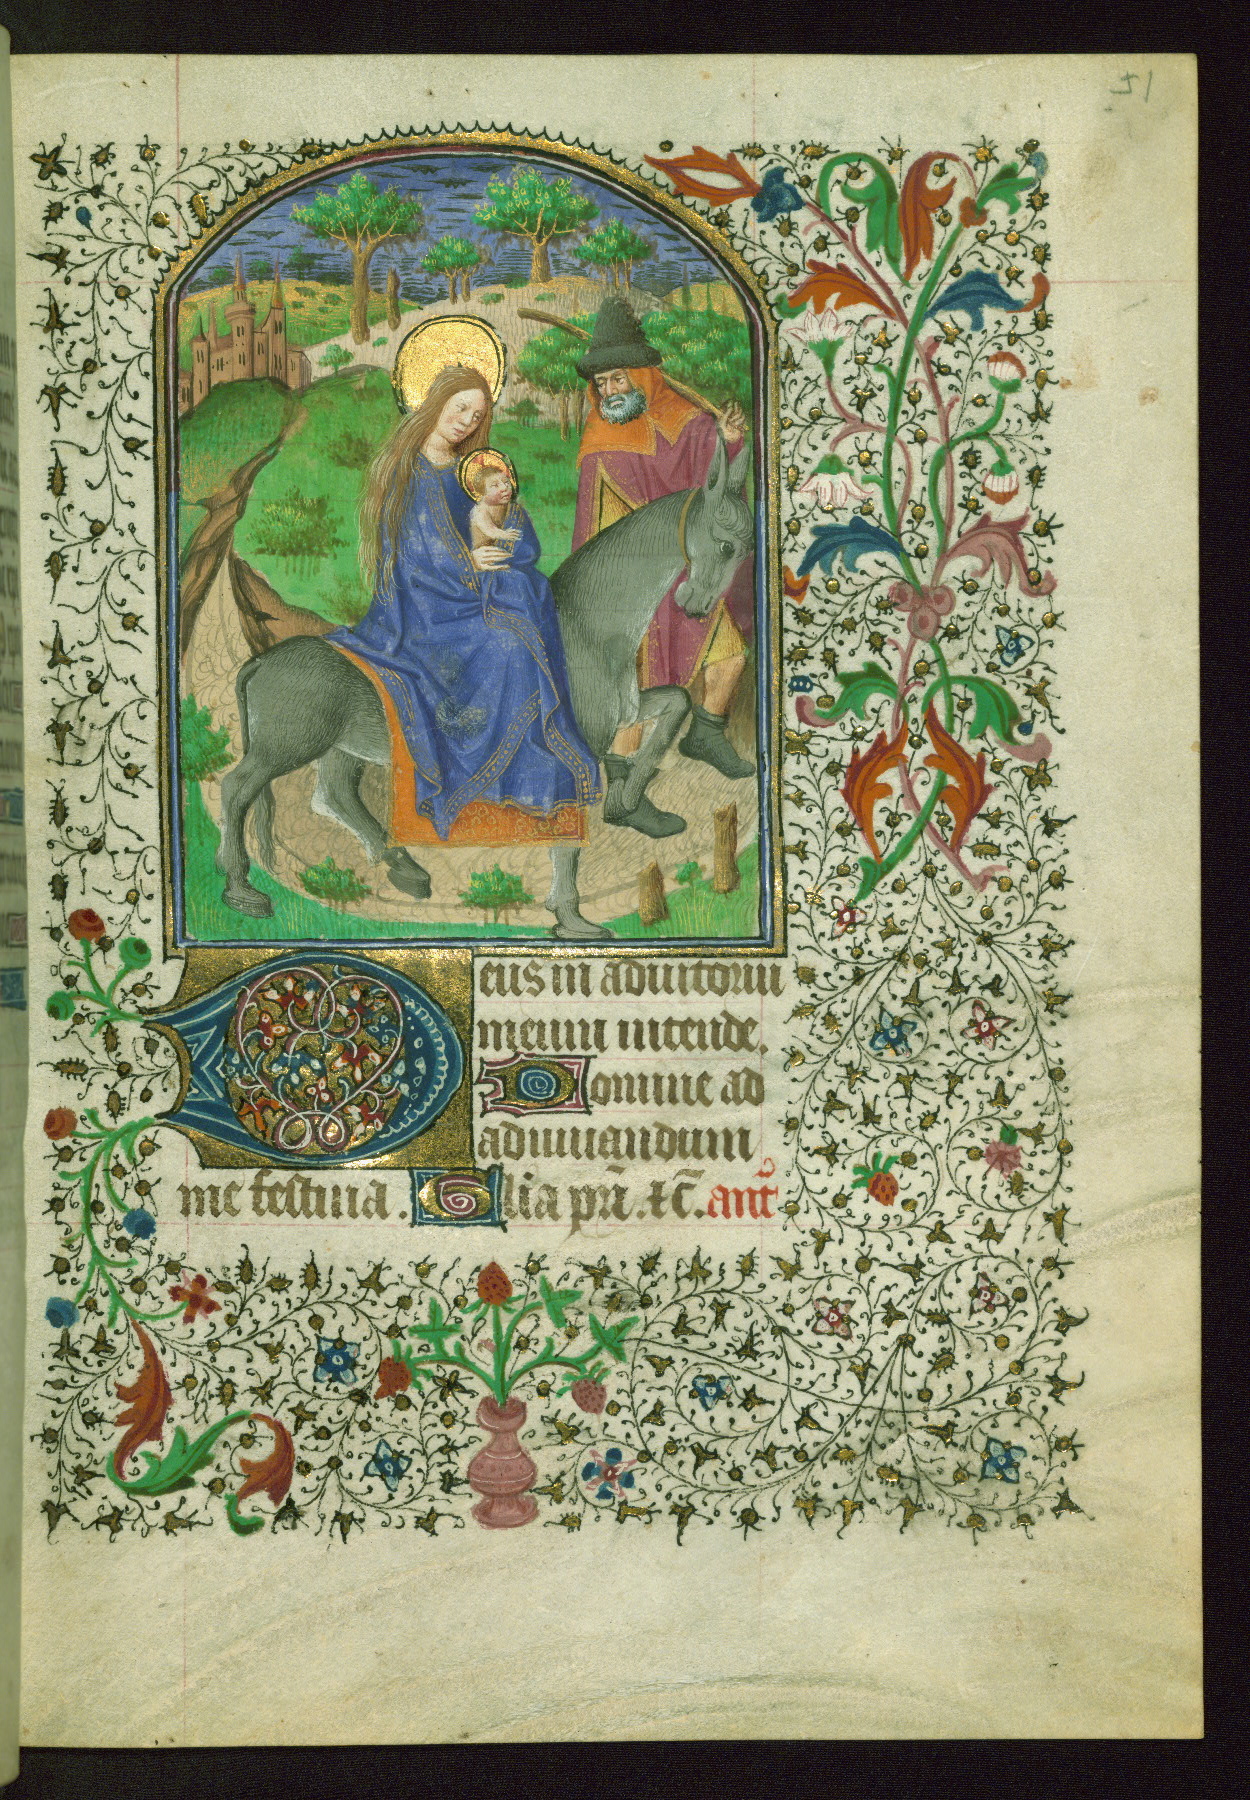 51
Deus in adiutoriu
meum intende.
Domine ad
adiuuandum
me festina. Glia pr̄i .⁊ c̄. ant̄